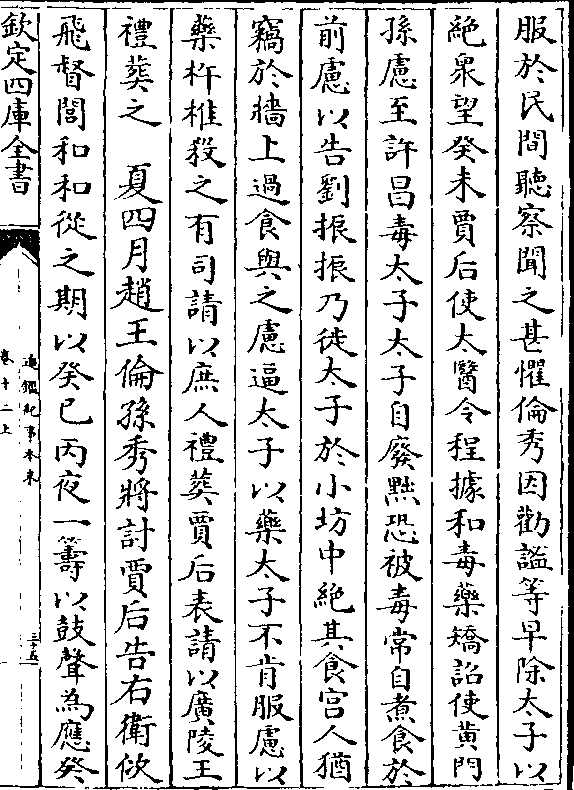 服於民間聽察聞之甚懼倫秀因勸謐等早除太子以
絶衆望癸未賈后使太醫令程據和毒藥矯詔使黄門
孫慮至許昌毒太子太子自廢黜恐被毒常自煮食於
前慮以告劉振振乃徙太子於小坊中絶其食宫人猶
竊於墻上過食與之慮逼太子以藥太子不肯服慮以
藥杵椎殺之有司請以庶人禮葬賈后表請以廣陵王
禮葬之　夏四月趙王倫孫秀將討賈后告右衛佽
飛督閭和和從之期以癸巳丙夜一籌以鼓聲為應癸
欽定四庫全書
通鑑紀事本末
卷十二上
三十五